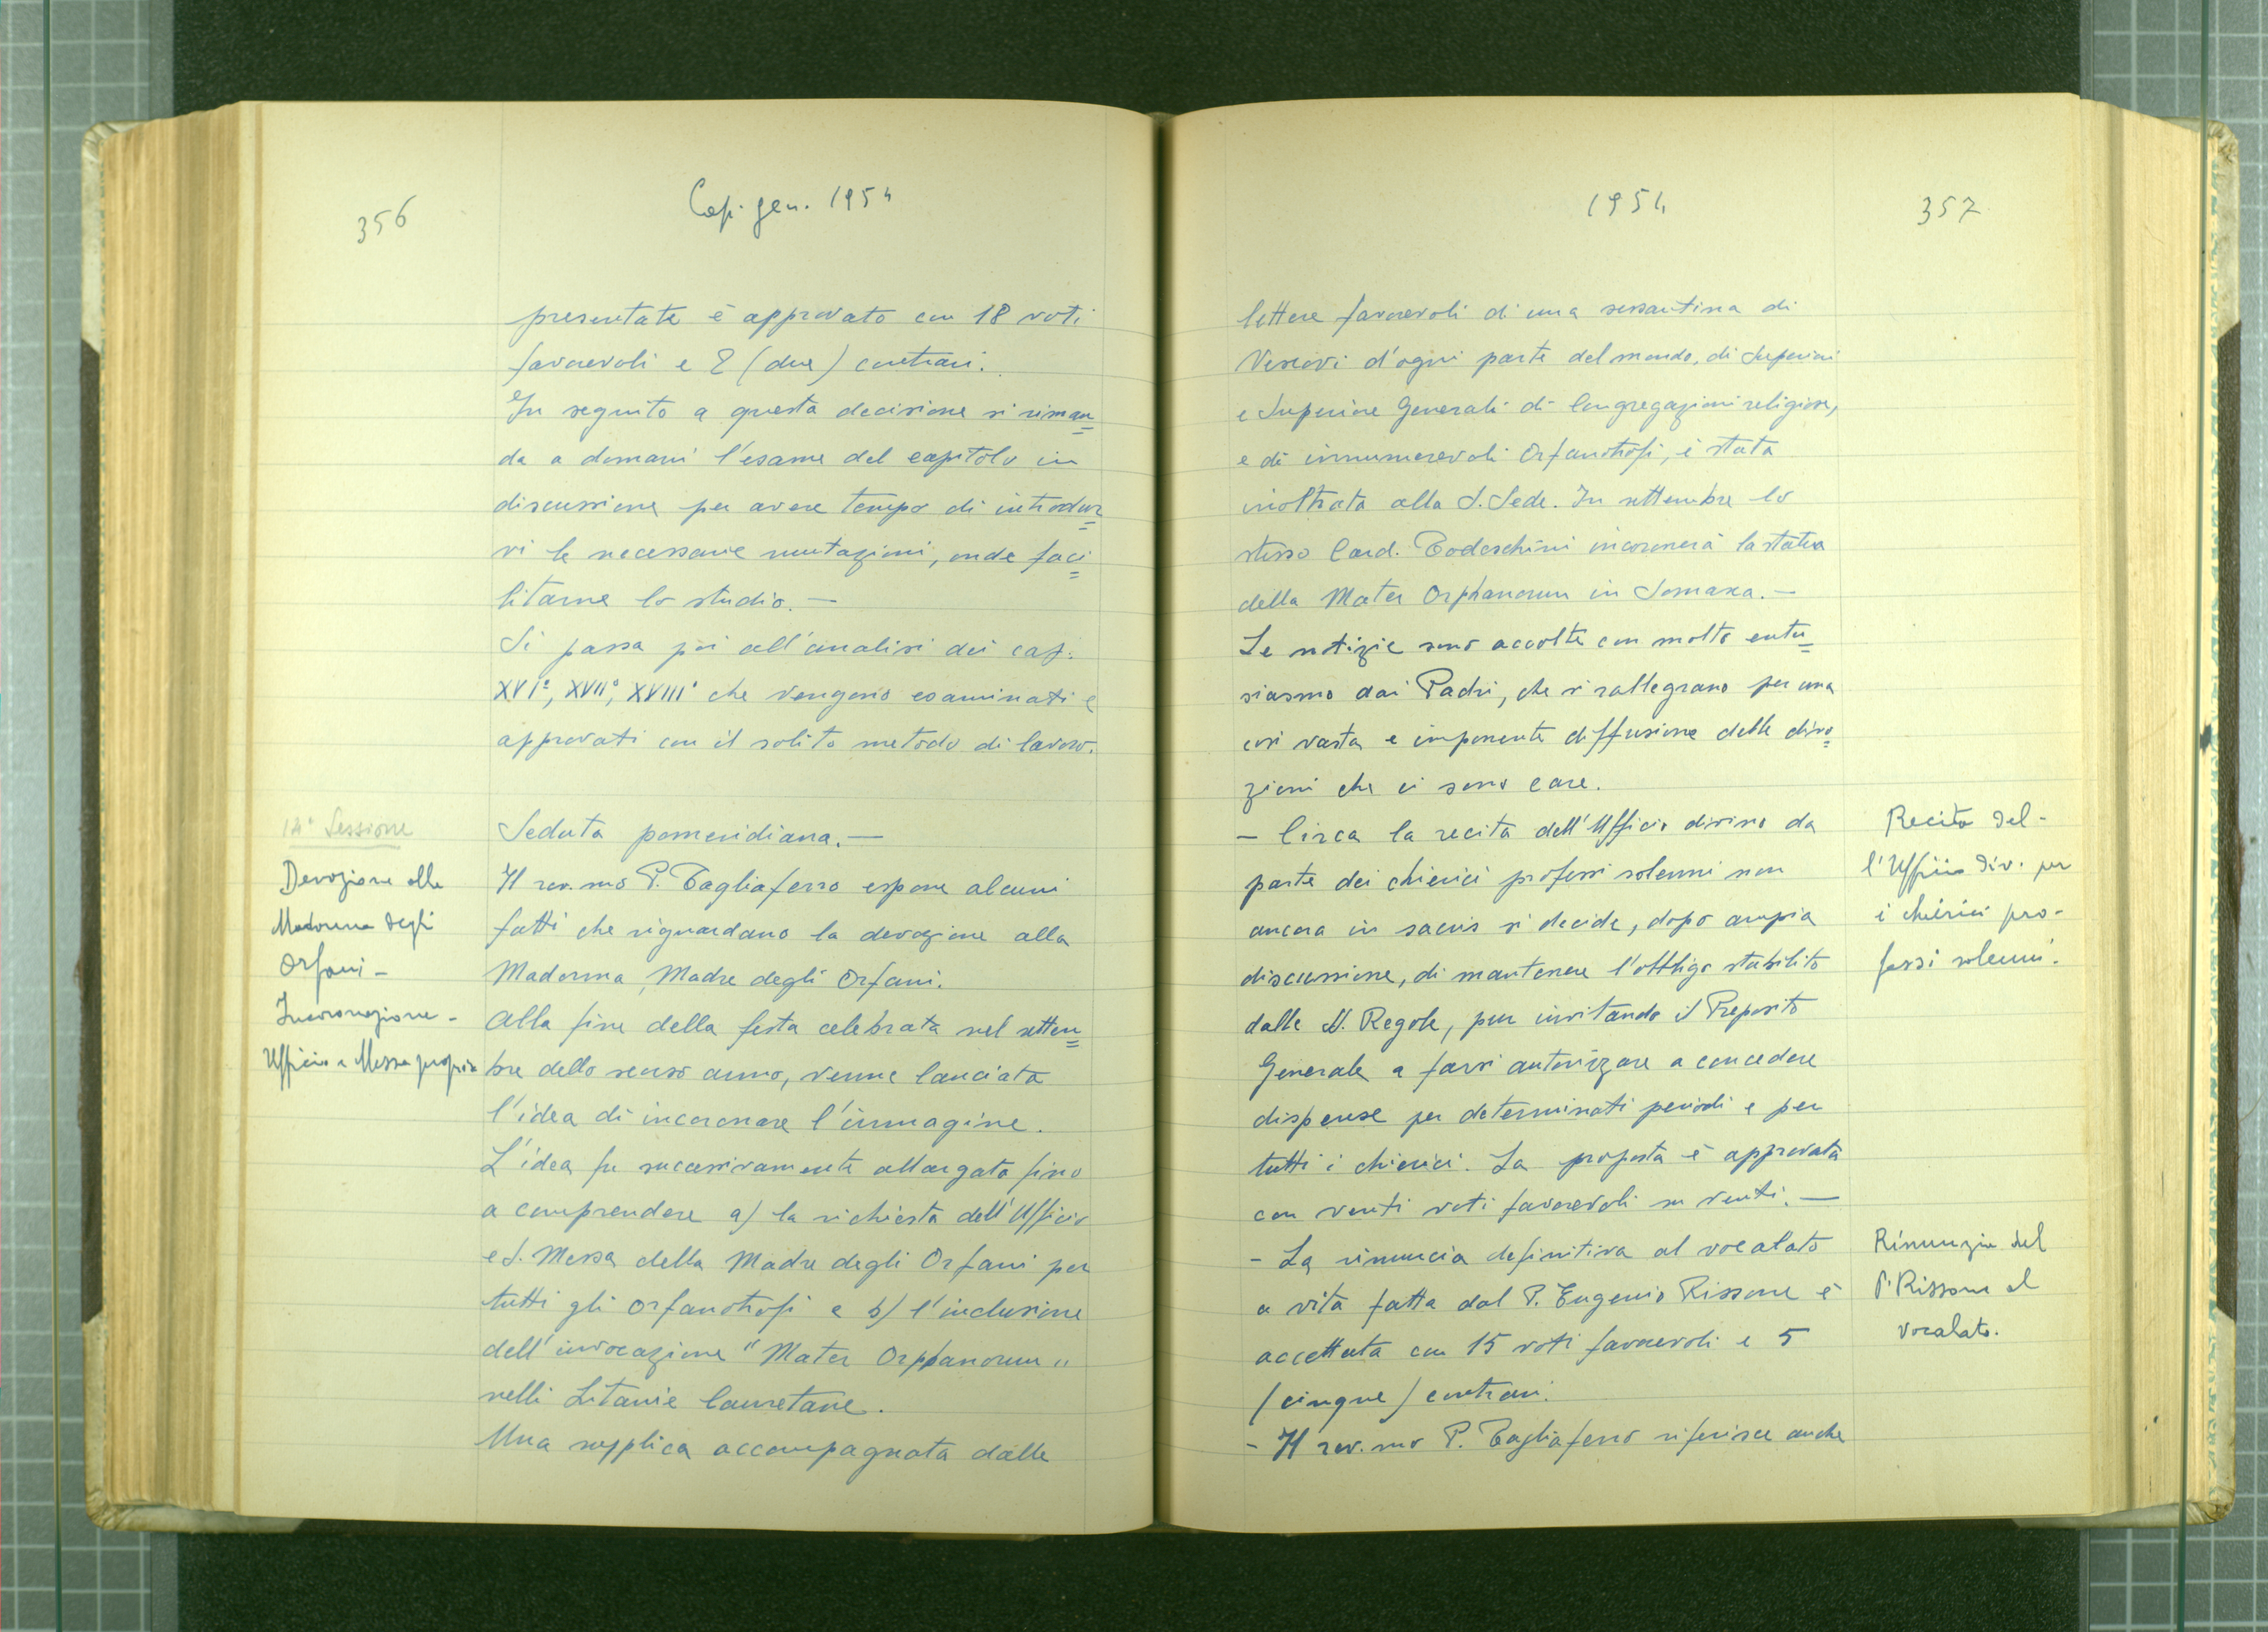 356
Cap. gen. 1954
presentate è approvato con 18 voti
favorevoli e 2 (due) contrari.
In seguito a questa decisione si riman=
da a domani l'esame del capitolo in
discussione per avere tempo di introdur=
vi le necessarie mutazioni, onde faci=
litarne lo studio. —
Si passa poi all'analisi dei cap.
XVI°, XVII°, XVIII° che vengono esaminati e
approvati con il solito metodo di lavoro.
14ª Sessione
Seduta pomeridiana. —
Devozione alla
Madonna degli
Orfani -
Incoronazione -
Ufficio e Messa propria
Il rev.mo P. Tagliaferro espone alcuni
fatti che riguardano la devozione alla
Madonna, Madre degli Orfani.
Alla fine della festa celebrata nel settem=
bre dello scorso anno, venne lanciata
l'idea di incoronare l'immagine.
L'idea fu successivamente allargata fino
a comprendere a) la richiesta dell'Ufficio
e S. Messa della Madre degli Orfani per
tutti gli orfanotrofi e b) l'inclusione
dell'invocazione "Mater Orphanorum"
nelli Litanie lauretane.
Una supplica accompagnata dalle
1954
357
lettere favorevoli di una sessantina di
Vescovi d'ogni parte del mondo, di Superiori
e Superiore Generali di Congregazioni religiose,
e di innumerevoli Orfanotrofi, è stata
inoltrata alla S. Sede. In settembre lo
stesso Card. Tedeschini incoronerà la statua
della Mater Orphanorum in Somasca. —
Le notizie sono accolte con molto entu=
siasmo dai Padri, che si rallegrano per una
così vasta e imponente diffusione delle divo=
zioni che ci sono care.
— Circa la recita dell'Ufficio divino da
parte dei chierici professi solenni non
ancora in sacris si decide, dopo ampia
discussione, di mantenere l'obbligo stabilito
dalle SS. Regole, pur invitando il Preposito
Generale a farsi autorizzare a concedere
dispense per determinati periodi e per
tutti i chierici. La proposta è approvata
con venti voti favorevoli su venti. —
Recita del-
l'Ufficio div. per
i chierici pro-
fessi solenni.
- La rinuncia definitiva al vocalato
a vita fatta dal P. Eugenio Rissone è
accettata con 15 voti favorevoli e 5
(cinque) contrari.
Rinunzia del
P. Rissone al
vocalato.
- Il rev.mo P. Tagliaferro riferisce anche